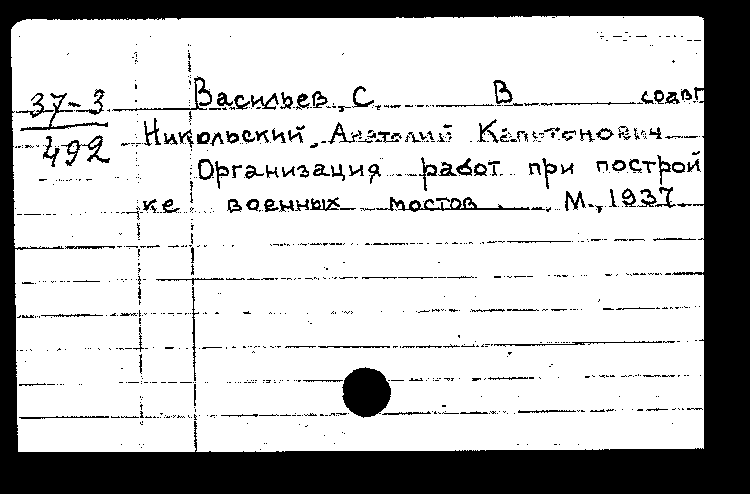 37-3
492
Васильев, С. В соавт
Никольский, Анатолий Капитонович
Организация работ при построй
ке военных мостов. М., 1937.